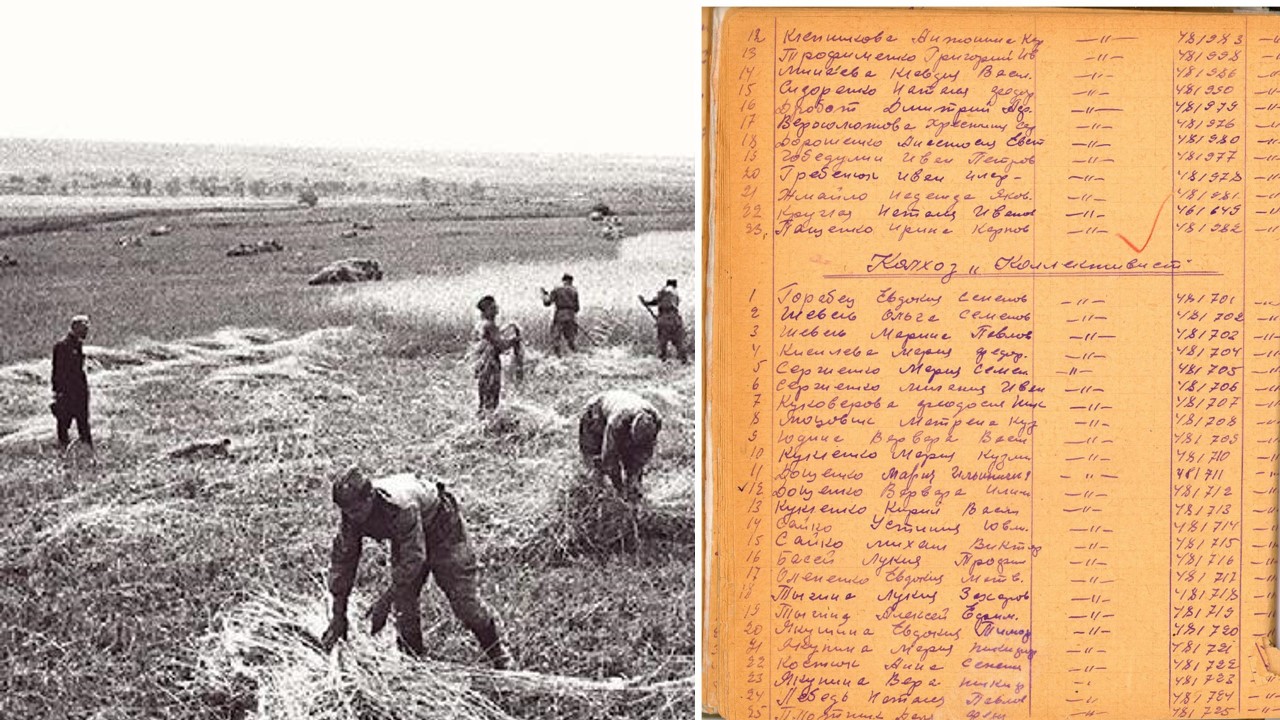 12 Клепикова Антонина Куз —"— 481983
13 Трофименко Григорий Ив —"— 481998
14 Минаева Клавдия Васил. —"— 481986
15 Сидоренко Наталия Федор —"— 481990
16 Дробот Дмитрий —"— 481979
17 —"— 481976
18 Дорошенко Анастасия Евст —"— 481980
19 Иван Петров —"— 481977
20 Гребенюк Иван —"— 481978
21 Жмайло Надежда Яков. —"— 481981
22 Круглая Наталия Иванов —"— 461649
23. Пащенко Ирина Карпов —"— 481982
Колхоз „Коллективист"
1 Горобец Евдокия Семенов —"— 481701
2 Швець Ольга Семенов —"— 481702
3 Швець Марина Павлов —"— 481702
4 Киселева Мария Федор. —"— 481704
5 Сергиенко Мария Семен —"— 481705
6 Сергиенко Иван —"— 481706
7 Куковерова Феодосия Ник —"— 481707
8 Матрена Куз —"— 481708
9 Юдина Варвара Васил —"— 481709
10 Кукленко Мария Кузьм —"— 481710
11 Доценко Мария Ильинична —"— 481711
12 Доценко Варвара Ильин —"— 481712
13 Василь —"— 481713
14 Сайко Устиния —"— 481714
15 Сайко Михаил Виктор —"— 481715
16 Басей Лукия Трофим —"— 481716
17 Евдокия Матв. —"— 481717
18 Тысина Лукия Захаров —"— 481718
19 Тысина Алексей Ефим. —"— 481719
20 Якушина Евдокия Тимоф —"— 481720
21 Якушина Мария —"— 481721
22 Костюк Анна Семен —"— 481722
23 Якушина Вера —"— 481723
24 Лебедь Наталия Павлов —"— 481724
25 —"— 481725